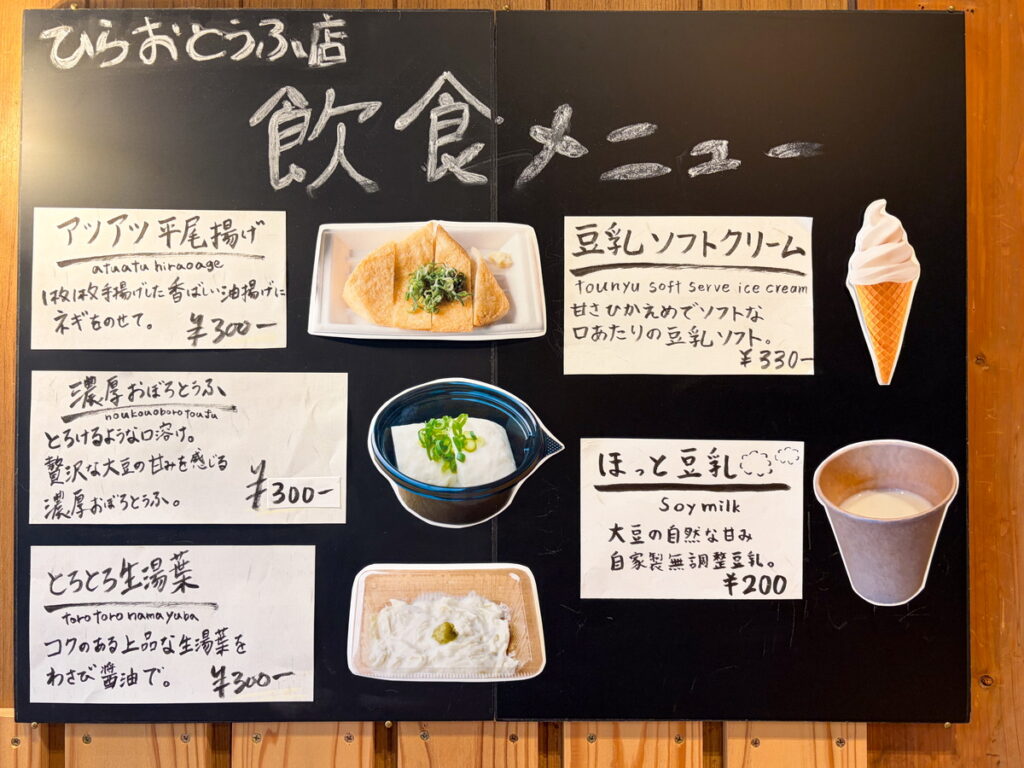 ひらおとうふ店
飲食メニュー
アツアツ平尾揚げ
atuatu hiraoage
1枚1枚手揚げした香ばしい油揚げに
ネギをのせて。
¥300-
濃厚おぼろとうふ
noukouoboro toufu
とろけるような口溶け。
贅沢な大豆の甘みを感じる
濃厚おぼろとうふ。
¥300-
とろとろ生湯葉
toro toro namayuba
コクのある上品な生湯葉を
わさび醤油で。
¥300-
豆乳ソフトクリーム
tounyu soft serve ice cream
甘さひかえめでソフトな
口あたりの豆乳ソフト。
¥330-
ほっと豆乳
Soy milk
大豆の自然な甘み
自家製無調整豆乳。
¥200